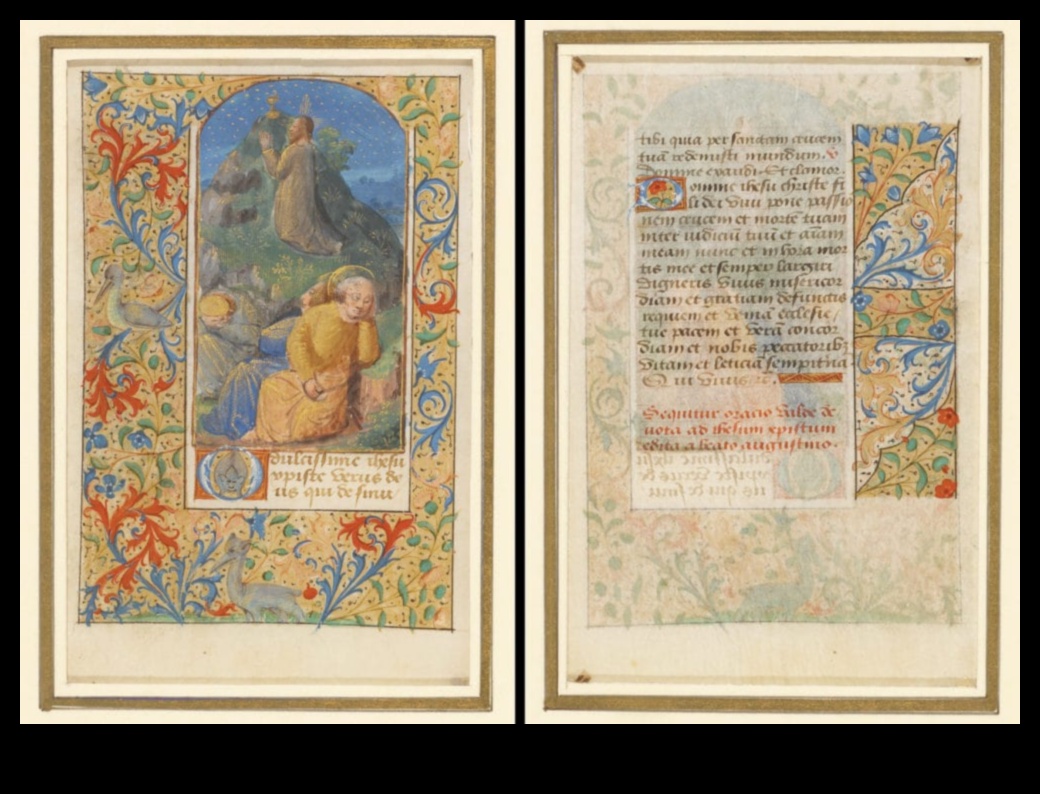 dulcissime ihesu
xpiste verus de
us qui de sinu
tibi quia per sanctam crucem
tuā redemisti mundum. V
Domine exaudi. Et clamor.
Domine ihesu christe fi
li dei vivi pone passio
nem crucem et mortē tuam
inter iudiciū tuū et aīam
meam nunc et in hora mor
tis mee et semper largiri
digneris vivis misericor
diam et gratiam defunctis
requiem et veniā ecclesie
tue pacem et verā concor
diam et nobis peccatoribz
vitam et leticiā sempitnā
Qui vivis
Sequitur oracio valde de
vota ad ihesum xpistum
edita a beato augustino.